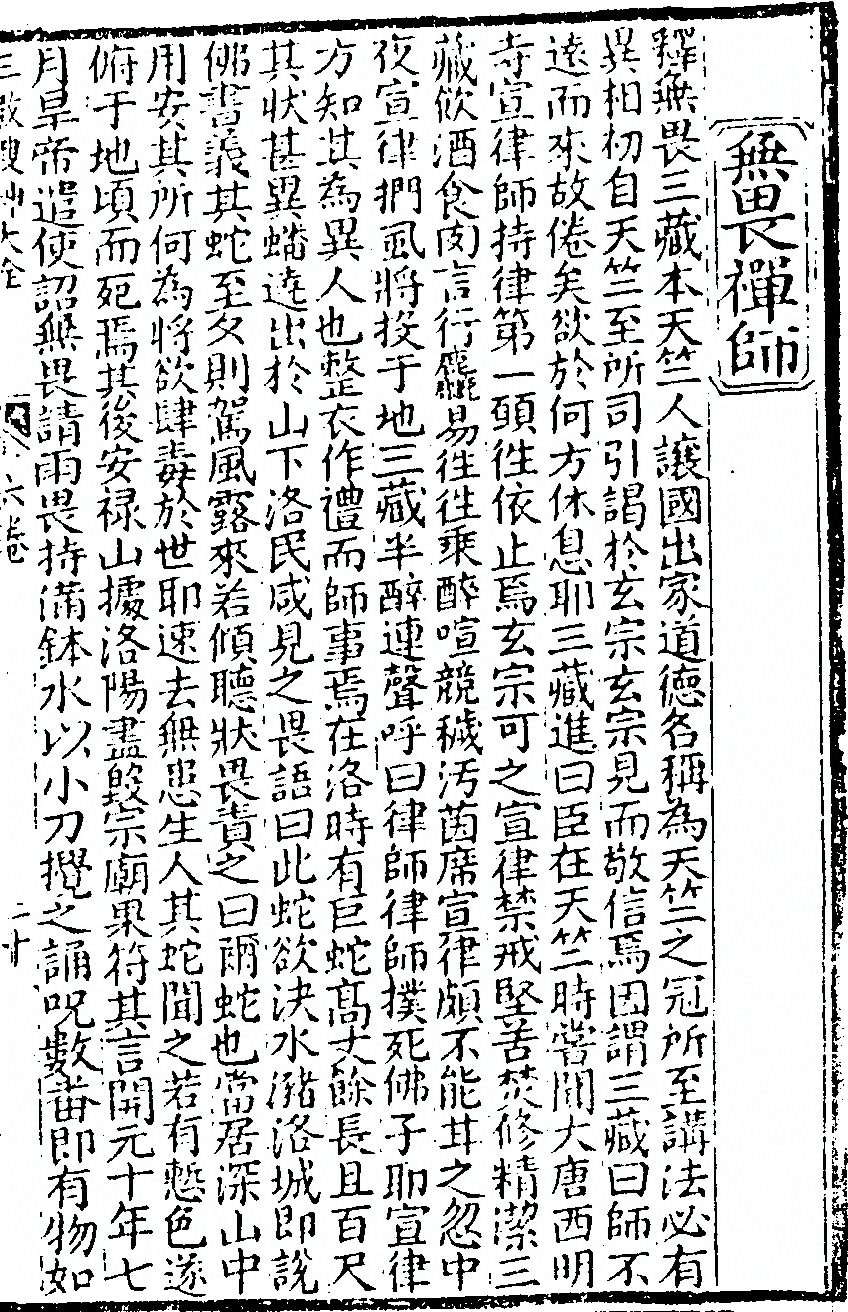 無畏禪師
釋無畏三藏本天竺人讓國出家道德名稱為天竺之冠所至講法必有
異相初自天竺至所司引謁於玄宗玄宗見而敬信焉因謂三藏曰師不
遠而來故倦矣欲於何方休息耶三藏進曰臣在天竺時嘗聞大唐西明
寺宣律師持律第一願徃依止焉玄宗可之宣律禁戒堅苦焚修精潔三
藏飲酒食肉言行麤易徃徃乘醉喧競穢汚茵席宣律頗不能甘之忽中
夜宣律捫虱將投于地三藏半醉連聲呼曰律師律師撲死佛子耶宣律
方知其為異人也整衣作禮而師事焉在洛時有巨蛇高丈餘長且百尺
其狀甚異蟠遶出於山下洛民咸見之畏語曰此蛇欲決水瀦洛城即說
佛書義其蛇至夕則駕風露來若傾聽狀畏責之曰爾蛇也當居深山中
用安其所何為將欲肆毒於世耶速去無患生人其蛇聞之若有慙色遂
俯于地頃而死焉其後安禄山據洛陽盡毀宗廟果符其言開元十年七
月旱帝遣使詔無畏請雨畏持滿鉢水以小刀攪之誦呪數畨即有物如
三教搜神大全 六卷 二十